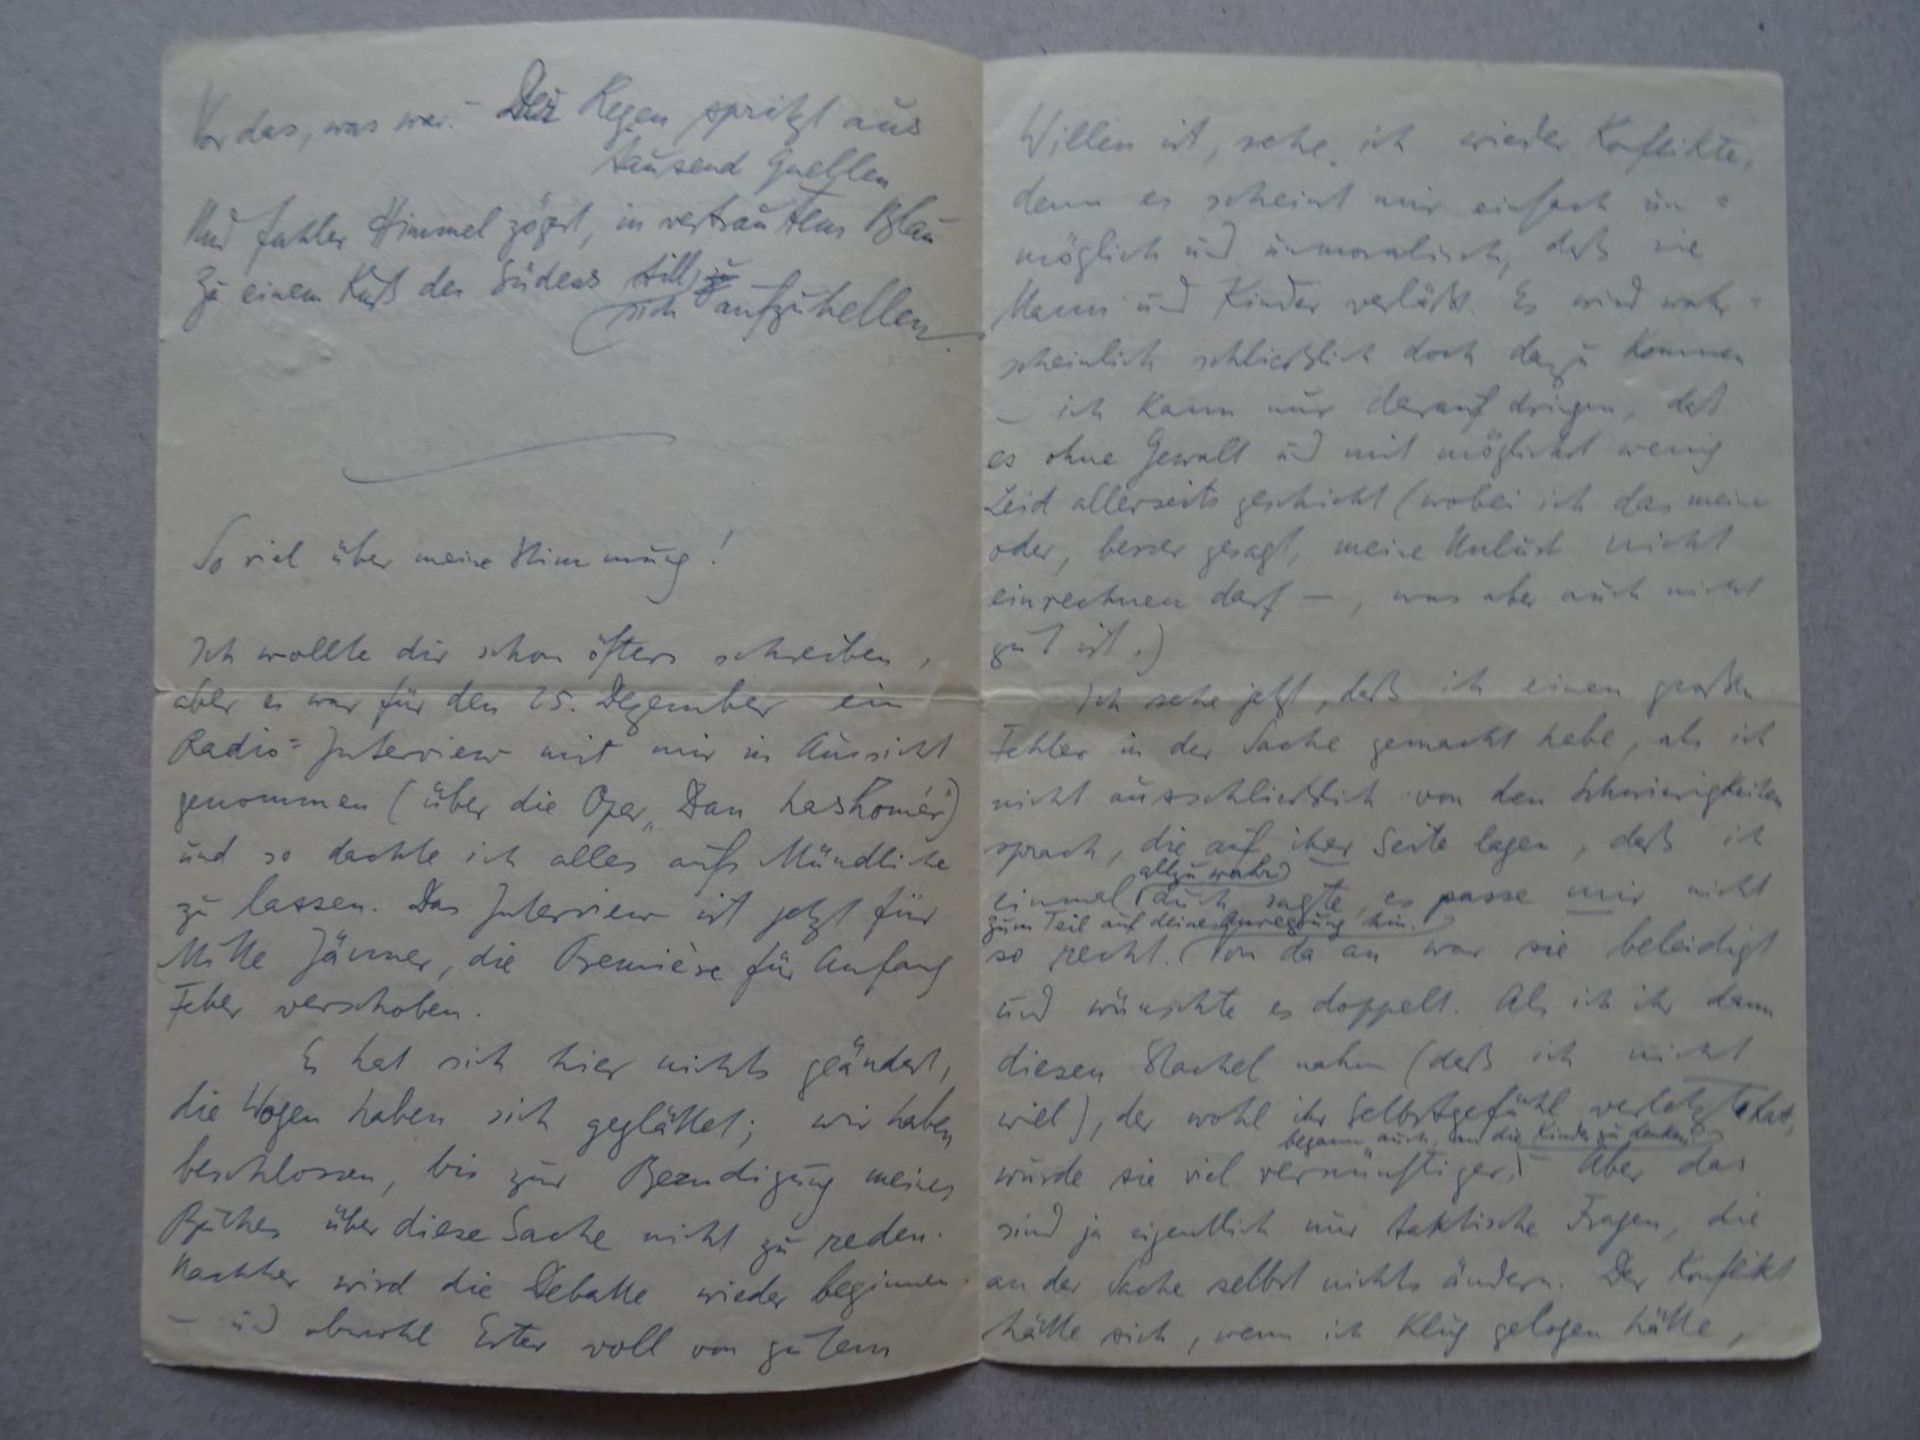 Vor das, was war. – Der Regen spritzt aus
tausend Quellen
Und fahler Himmel zögert, in vertrautem Blau
Zu einem Kuß des Südens still
sich aufzuhellen.
So viel über meine Stimmung!
Ich wollte dir schon öfters schreiben,
aber es war für den 25. Dezember ein
Radio=Interview mit mir in Aussicht
genommen (über die Oper „Dan haskomér")
und so dachte ich alles aufs Mündliche
zu lassen. Das Interview ist jetzt für
Mitte Jänner, die Première für Anfang
Feber verschoben.
Es hat sich hier nichts geändert,
die Wogen haben sich geglättet; wir haben
beschlossen, bis zur Beendigung meines
Buches über diese Sache nicht zu reden.
Nachher wird die Debatte wieder beginnen
– und obwohl Ester voll von gutem
Willen ist, sehe ich wieder Konflikte,
denn es scheint mir einfach un=
möglich und unmoralisch, daß sie
Mann und Kinder verläßt. Es wird wahr=
scheinlich schließlich doch dazu kommen
– ich kann nur darauf dringen, daß
es ohne Gewalt und mit möglichst wenig
Leid allerseits geschieht (wobei ich das meine
oder, besser gesagt, meine Unlust nicht
einrechnen darf –, was aber auch nicht
gut ist.)
Ich sehe jetzt, daß ich einen großen
Fehler in der Sache gemacht habe, als ich
nicht ausschließlich von den Schwierigkeiten
sprach, die auf ihrer Seite lagen, daß ich
allzu wahr
einmal auch sagte, es passe mir nicht
zum Teil auf deine Anregung hin.
so recht. Von da an war sie beleidigt
und wünschte es doppelt. Als ich ihr dann
diesen Stachel nahm (daß ich nicht
will), der wohl ihr Selbstgefühl verletzt hat,
begann auch, an die Kinder zu denken
wurde sie viel vernünftiger. Aber das
sind ja eigentlich nur taktische Fragen, die
an der Sache selbst nichts ändern. Der Konflikt
hätte sich, wenn ich klug gelogen hätte,